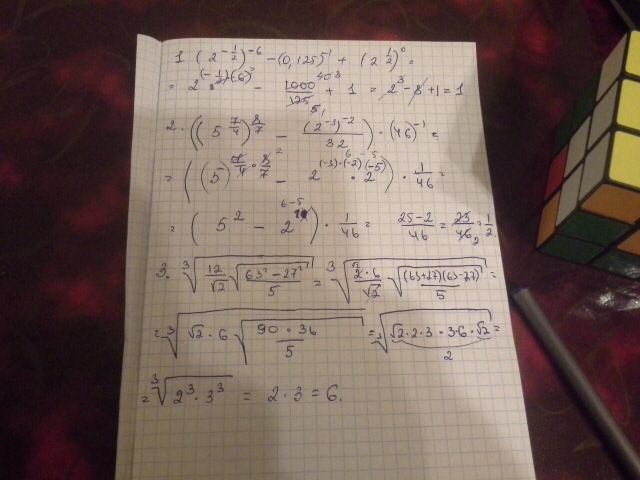 1 (2^{-1/2})^{-6} - (0,125)^{-1} + (2^{1/2})^0 =
= 2^{(-1/2)·(-6)} - 1000/125 + 1 = 2^3 - 8 + 1 = 1
2. ((5^{7/4})^{8/7} - (2^{-3})^{-2}/32) · (46)^{-1} =
= ((5)^{7/4 · 8/7} - 2^{(-3)·(-2)} · 2^{(-5)}) · 1/46 =
= (5^2 - 2^{6-5}) · 1/46 = 25-2/46 = 23/46 = 1/2.
3. ∛(12/√2 √(63² - 27²/5)) = ∛(2·6/√2 √((63+27)(63-27)/5)) =
= ∛(√2 · 6 √(90 · 36/5)) = ∛(√2 · 2 · 3 · 3 · 6 · √2) =
2
= ∛(2³ · 3³) = 2 · 3 = 6.